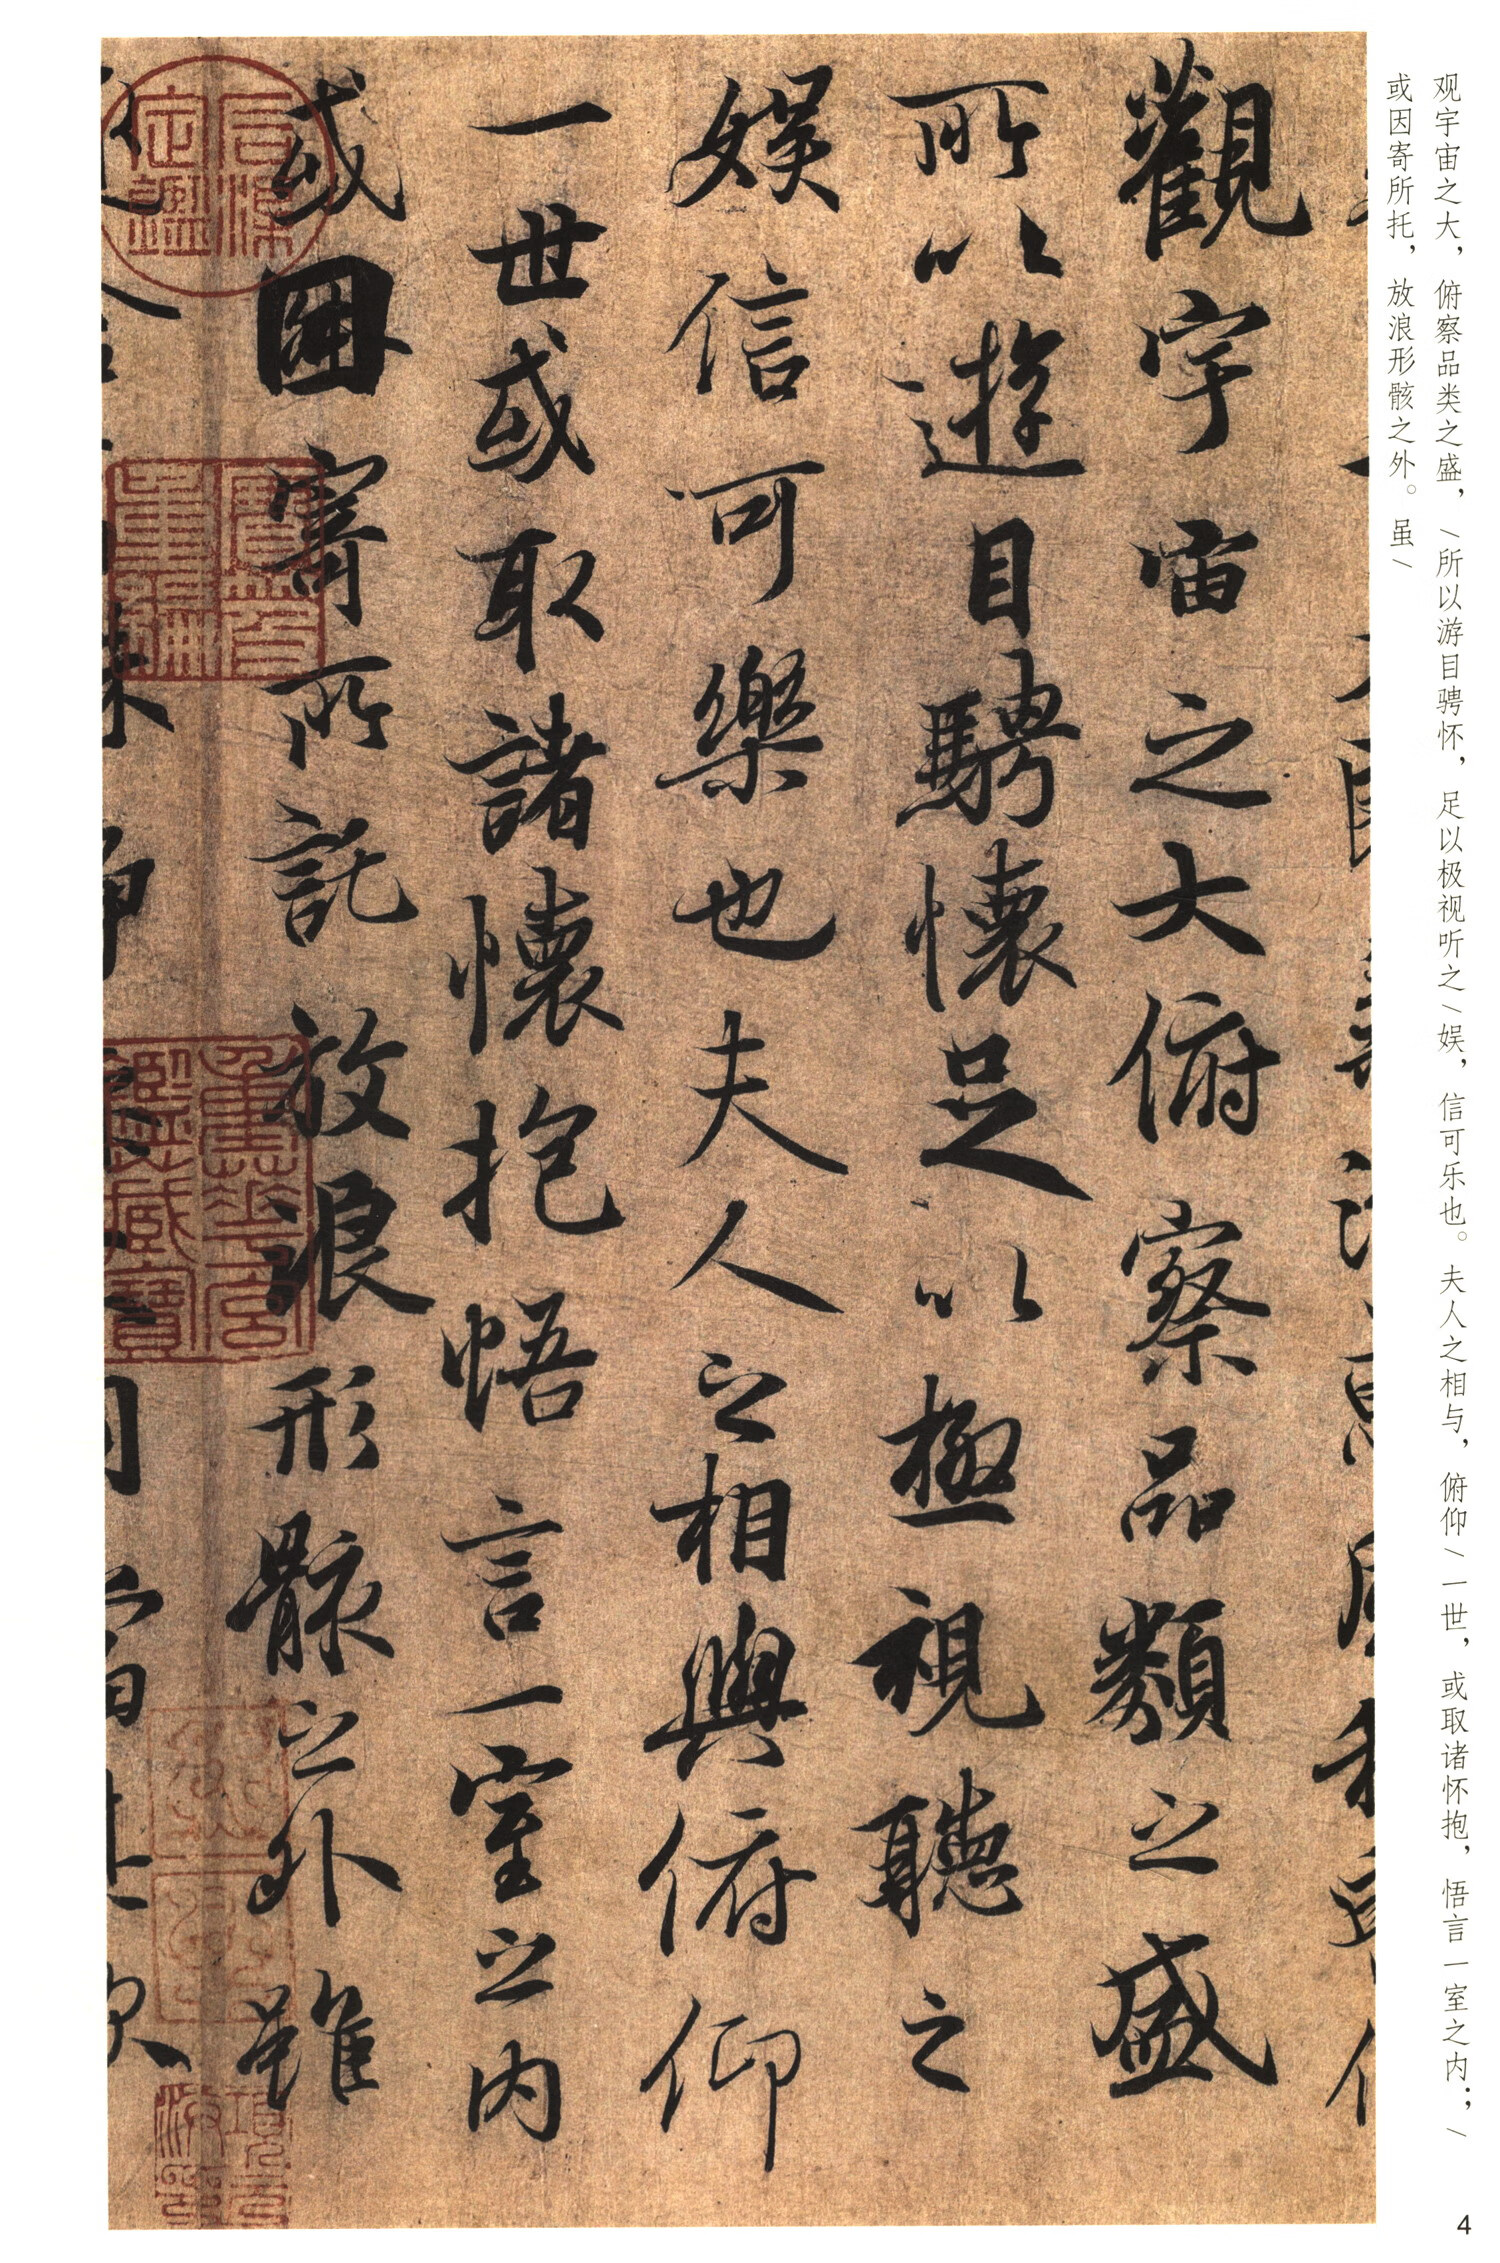 观宇宙之大，俯察品类之盛，\所以游目骋怀，足以极视听之\娱，信可乐也。夫人之相与，俯仰\一世，或取诸怀抱，悟言一室之内；\
或因寄所托，放浪形骸之外。虽\
觀宇宙之大俯察品類之盛
所以遊目騁懷足以極視聽之
娱信可樂也夫人之相與俯仰
一世或取諸懷抱悟言一室之内
或因寄所託放浪形骸之外雖
4